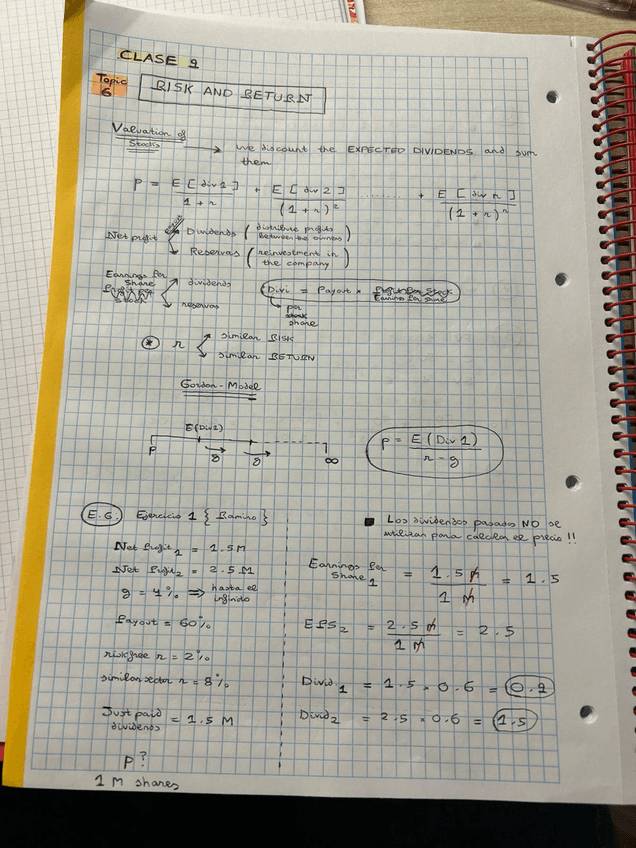 CLASE 9
Topic 6
RISK AND RETURN
Valuation of Stocks → we discount the EXPECTED DIVIDENDS and sum them
P = E [div 1] / 1 + r + E [div 2] / (1 + r)² ........ + E [div n] / (1 + r)ⁿ
Net profit
Dividends (distribute profits between the owners)
Reservas (reinvestment in the company)
Earnings per Share
dividends
reservas
Divi = Payout × Earnings per share
per share
* r
similar RISK
similar RETURN
Gordon-Model
E(Div1)
P g g ∞
P = E (Div 1) / r - g
E.G. Ejercicio 1 { Bamino }
Net Profit₁ = 1.5 M
Net Profit₂ = 2.5 M
g = 4% ⇒ hasta el infinito
Payout = 60%
riskfree r = 2%
similar sector r = 8%
Just paid dividends = 1.5 M
P?
1 M shares
■ Los dividendos pasados NO se utilizan para calcular el precio !!
Earnings per Share₁ = 1.5 M / 1 M = 1.5
EPS₂ = 2.5 M / 1 M = 2.5
Divid₁ = 1.5 × 0.6 = 0.9
Divid₂ = 2.5 × 0.6 = 1.5